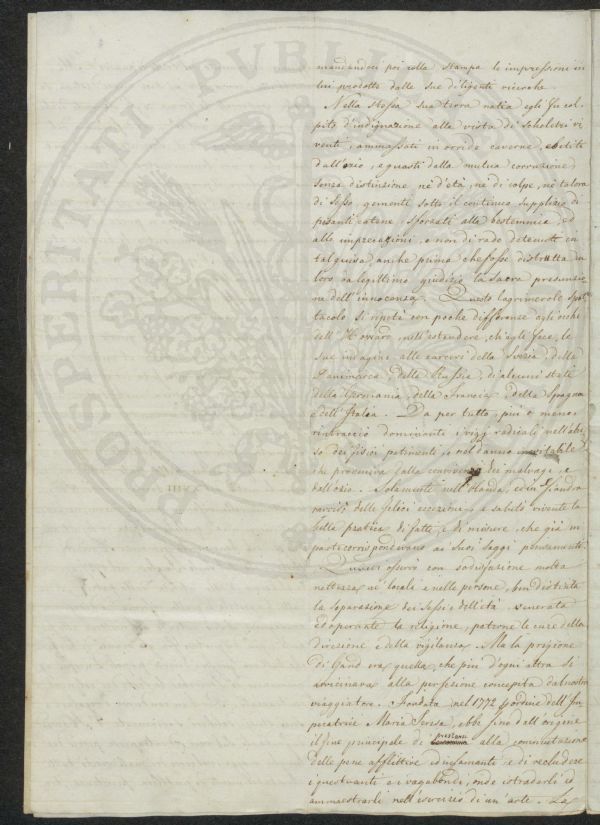 mandandoci poi colla stampa le impressioni in
lui prodotte dalle sue diligenti ricerche.
Nella stessa sua terra natia egli fu col-
pito d'indignazione alla vista di scheletri vi
venti, ammassati in orride caverne,
dall'ozio, guasti dalla mutua corruzione
senza distinzione nè d'età, nè di colpe, nè talora
di sesso gementi sotto il continuo supplizio di
pesanti catene, sforzati alla bestemmia, ed
alle imprecazioni, e non di rado detenuti in
tal guisa anche prima che fosse distrutta in
loro da legittimo giudizio la sacra presunzio
ne dell'innocenza. Questo lagrimevole spet
tacolo si ripetè con poche differenze agli occhi
dell'Howard, nell'estendere, ch'egli fece, le
sue indagini alle carceri della Svezia, della
Danimarca, della Russia, di alcuni stati
della Germania, della Francia, della Spagna
e dell'Italia. Da per tutto, più o meno
rintracciò dominanti i vizj radicali nell'abu
so dei fisici patimenti, e nel danno inevitabile
che proveniva dalla convivenza dei malvagi, e
dall'ozio. Solamente nell'Olanda, ed in Fiandra
ravvisò delle felici eccezioni, e salutò vivente la
bella pratica di fatti, e di misure, che già in
parte corrispondevano ai suoi saggi pensamenti.
Quivi osservò con sodisfazione molta
nettezza ne' locali e nelle persone, ben distinta
la separazione dei sessi e dell'età, venerata
ed operante la religione, patrone le cure della
direzione e della vigilanza. Ma la prigione
di Gand era quella, che più d'ogni altra si
avvicinava alla perfezione concepita dal nostro
viaggiatore. Fondata nel 1772 per ordine dell'Im
peratrice Maria Teresa, ebbe sino dall'origine
il fine principale di alla commutazione
delle pene afflittive ed infamanti, e di recludere
i questuanti e i vagabondi, onde istradarli ed
ammaestrarli nell'esercizio di un'arte. La
PROSPERITATI PVBLICAE